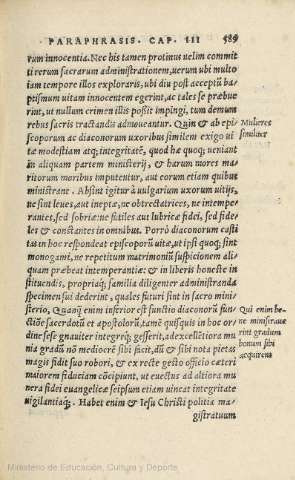 PARAPHRASIS. CAP. III 589
rum innocentia. Nec his tamen protinus uelim commit
ti rerum sacrarum administrationem, uerum ubi multo
iam tempore illos exploraris, ubi diu post acceptũ ba
ptismum uitam innocentem egerint, ac tales se præbue
rint, ut nullum crimen illis possit impingi, tum demum
rebus sacris tractandis admoueantur. Quin & ab epi
scoporum ac diaconorum uxoribus similem exigo ui
tæ modestiam atq; integritatẽ, quod hæ quoq; ueniant
in aliquam partem ministerij, & harum mores ma
ritorum moribus imputentur, aut eorum etiam quibus
ministrant. Absint igitur à uulgarium uxorum uitijs,
ne sint leues, aut ineptæ, ne obtrectatrices, ne intempe
rantes, sed sobriæ: ne futiles aut lubricæ fidei, sed fide
les & constantes in omnibus. Porrò diaconorum casti
tas in hoc respondeat episcoporũ uitæ, ut ipsi quoq; sint
monogami, ne repetitum matrimoniũ suspicionem ali
quam præbeat intemperantiæ: & in liberis honeste in
stituendis, propriaq; familia diligenter administranda
specimen sui dederint, quales futuri sint in sacro mini
sterio, Quanq̃ enim inferior est functio diaconorũ fun
ctiõe sacerdotũ et apostolorũ, tamẽ quisquis in hoc or
dine sese gnauiter integreq; gesserit, ad excellẽtiora mu
nia gradũ nõ mediocrẽ sibi facit, dũ & sibi nota pietas
magis fidit suo robori, & ex recte gesto officio cæteri
maiorem fiduciam cõcipiunt, ut euectus ad altiora mu
nera fidei euangelicæ seipsum etiam uincat integritate
uigilantiaq;. Habet enim & Iesu Christi politia ma-
gistratuum
Mulieres
similiter
Qui enim be-
ne ministraue
rint gradum
bonum sibi
acquirent
Ministerio de Educación, Cultura y Deporte